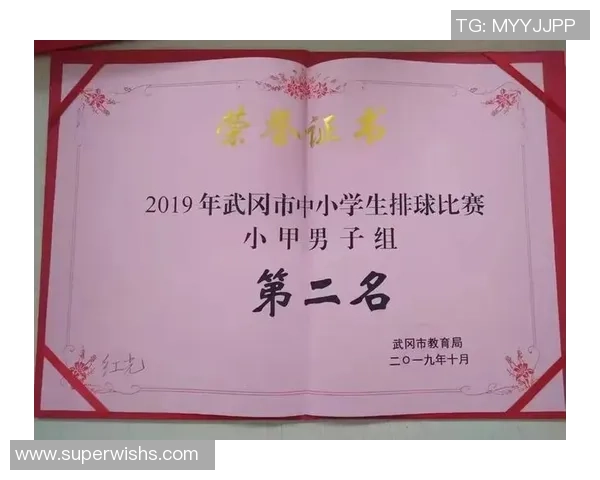 TG: MYYJJPP
荣誉证书
2019年武冈市中小学生排球比赛
小甲男子组
第二名
武冈市教育局
二〇一九年十月
红光
www.superwishs.com